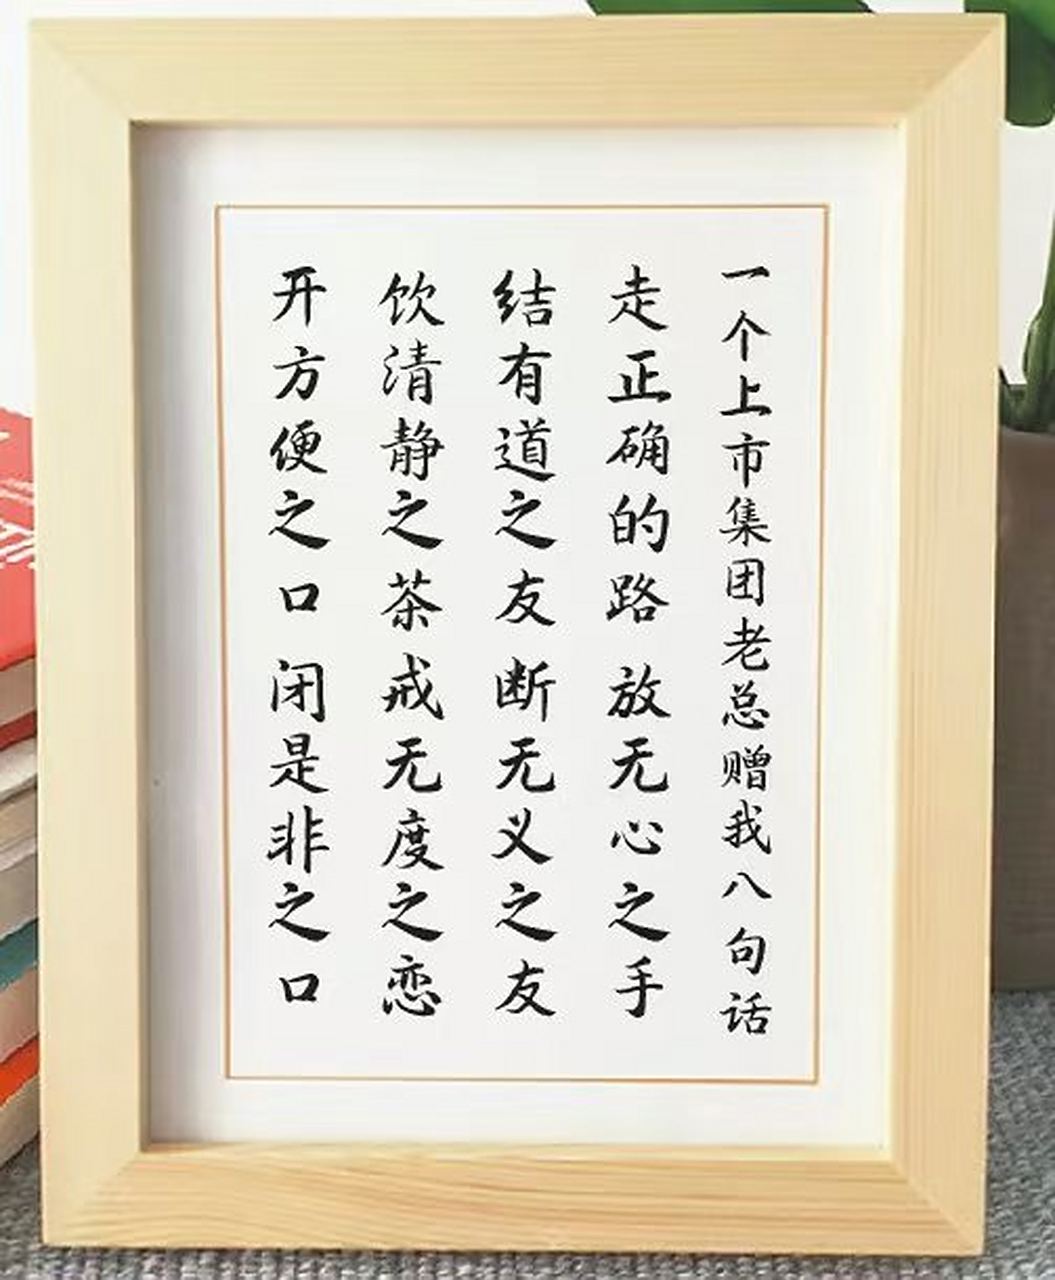 一个上市集团老总赠我八句话
走正确的路 放无心之手
结有道之友 断无义之友
饮清静之茶 戒无度之恋
开方便之口 闭是非之口